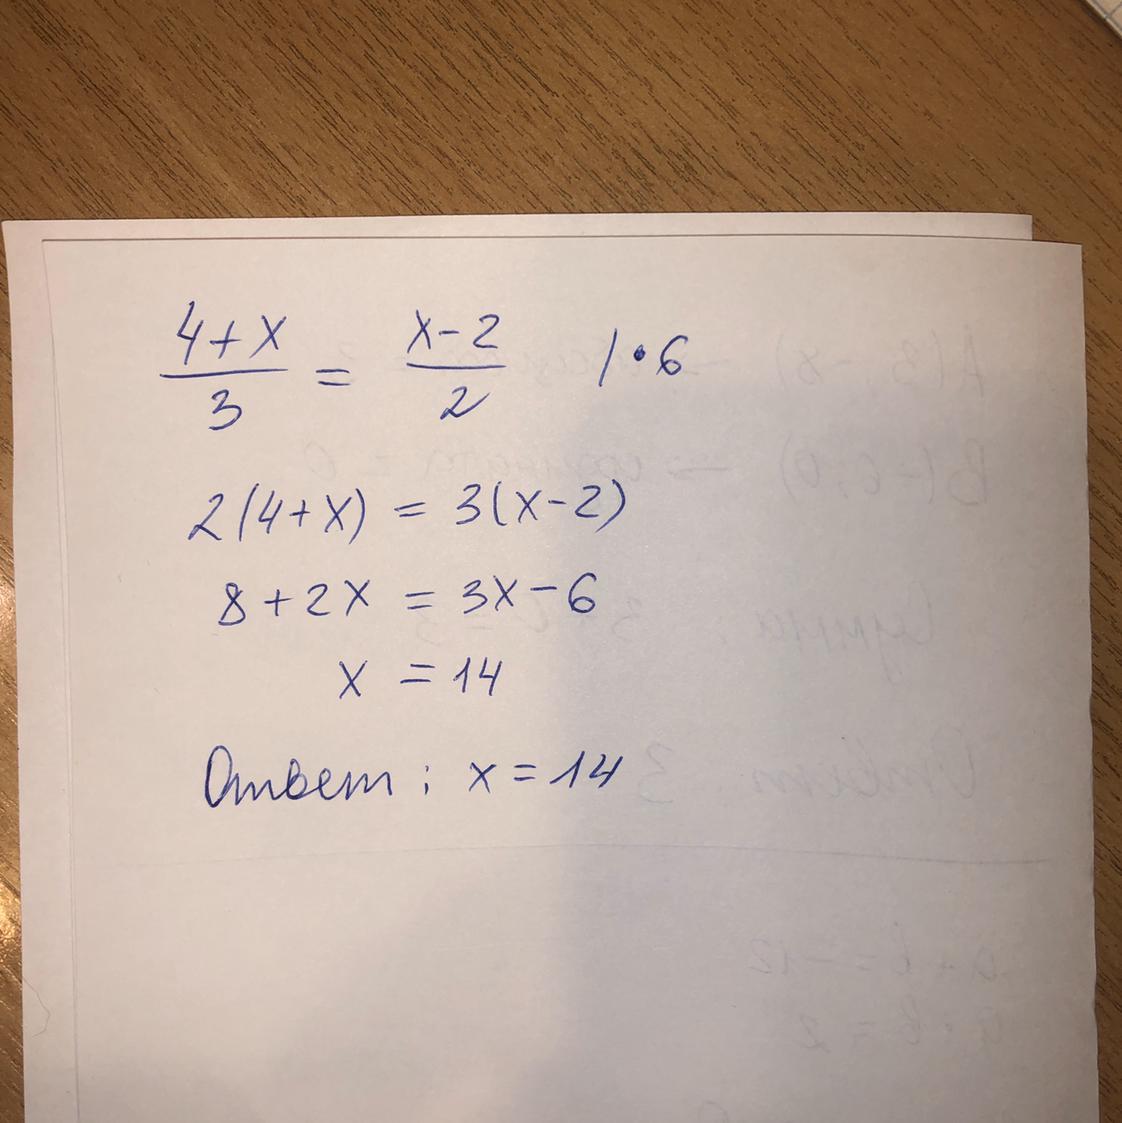 4+x/3 = x-2/2 /•6
2(4+x) = 3(x-2)
8+2x = 3x-6
x = 14
Ответ: x=14